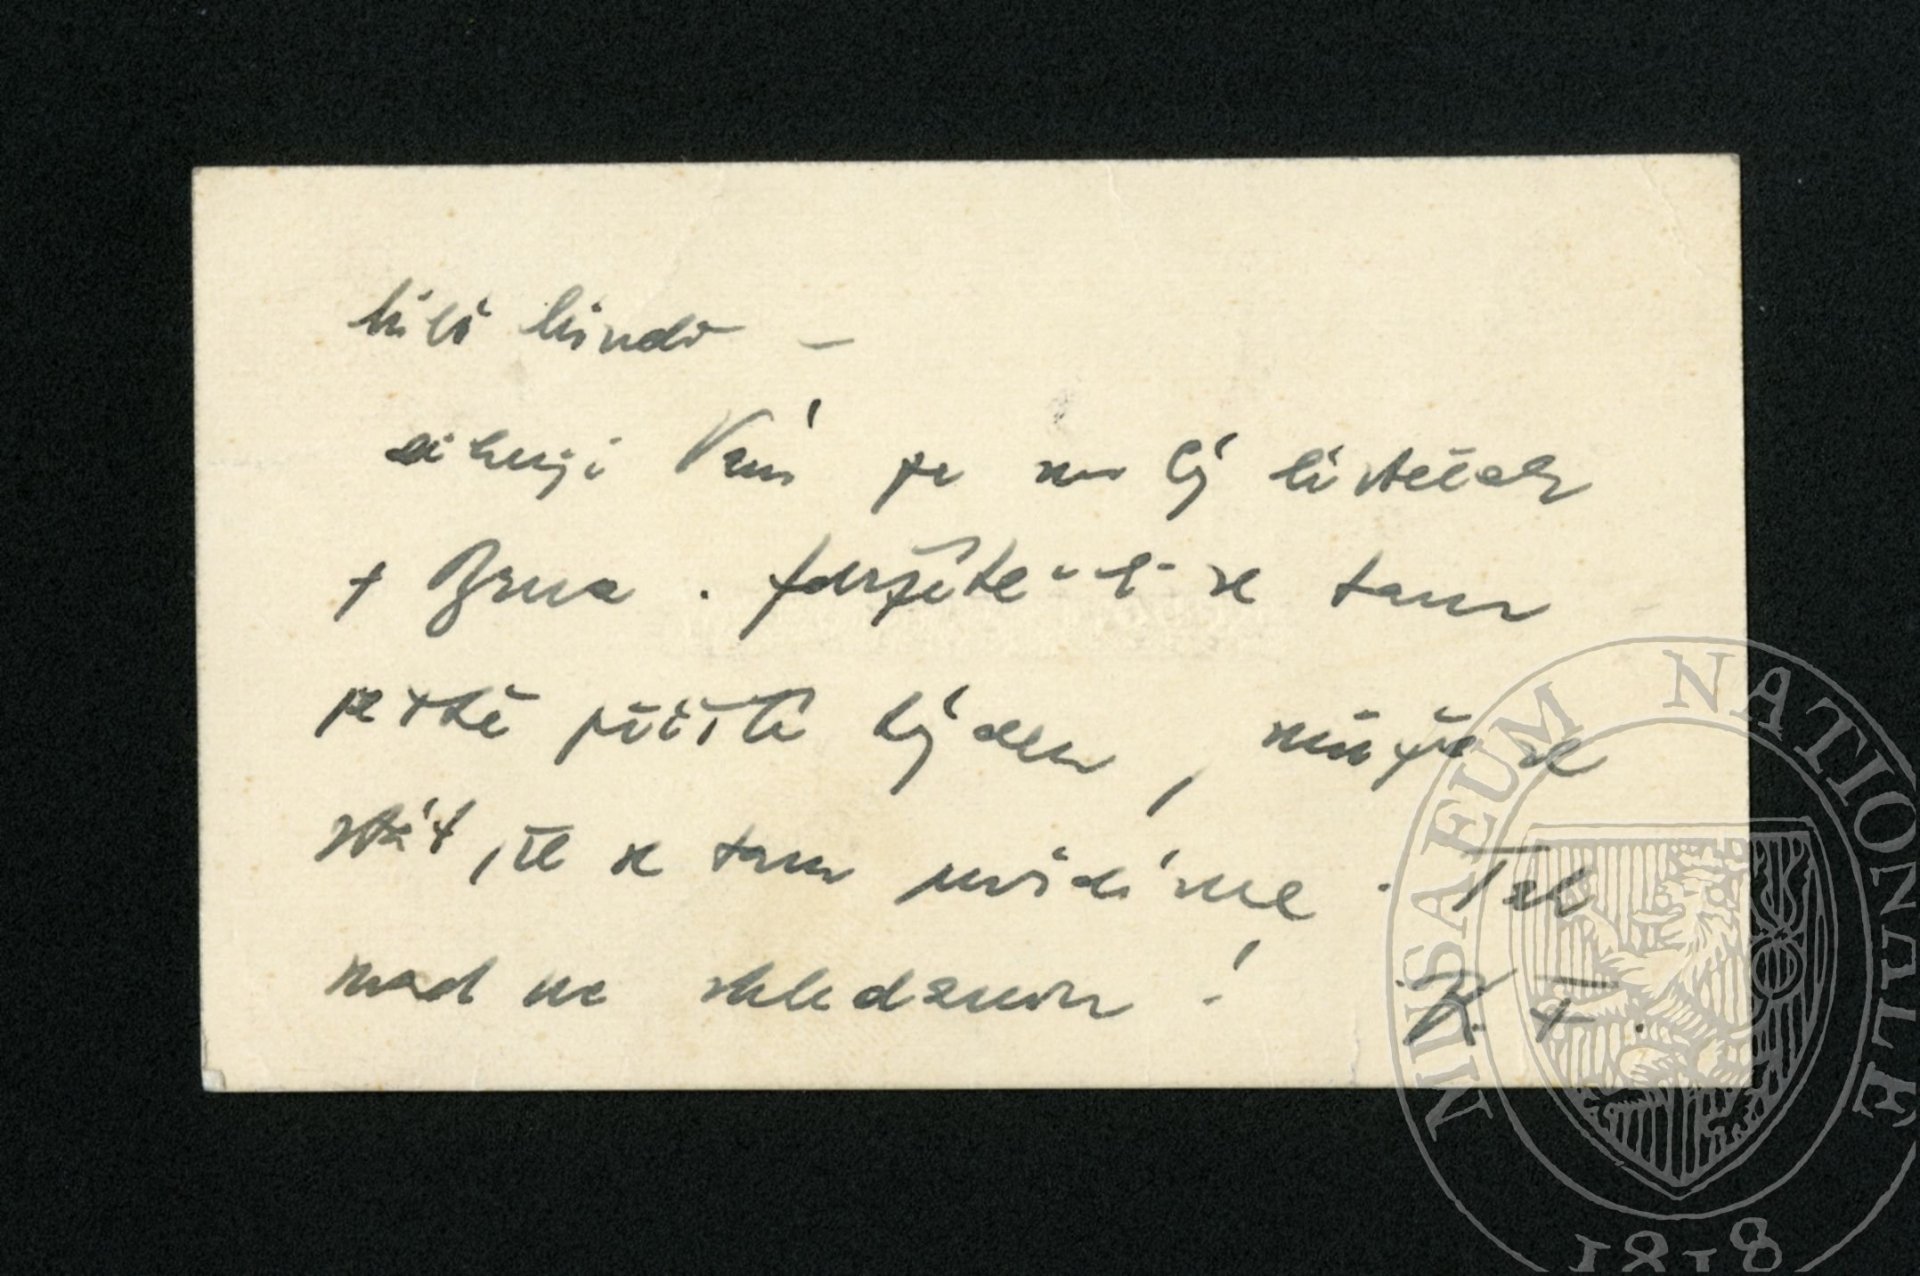 Milá Lindo –
děkuji Vám za milý lísteček
z Brna. Zdržíte-li se tam
ještě příští týden, může se
stát, že se tam uvidíme. Tak
snad na shledanou!
K. T.
MUSAEUM NATIONALE
1818